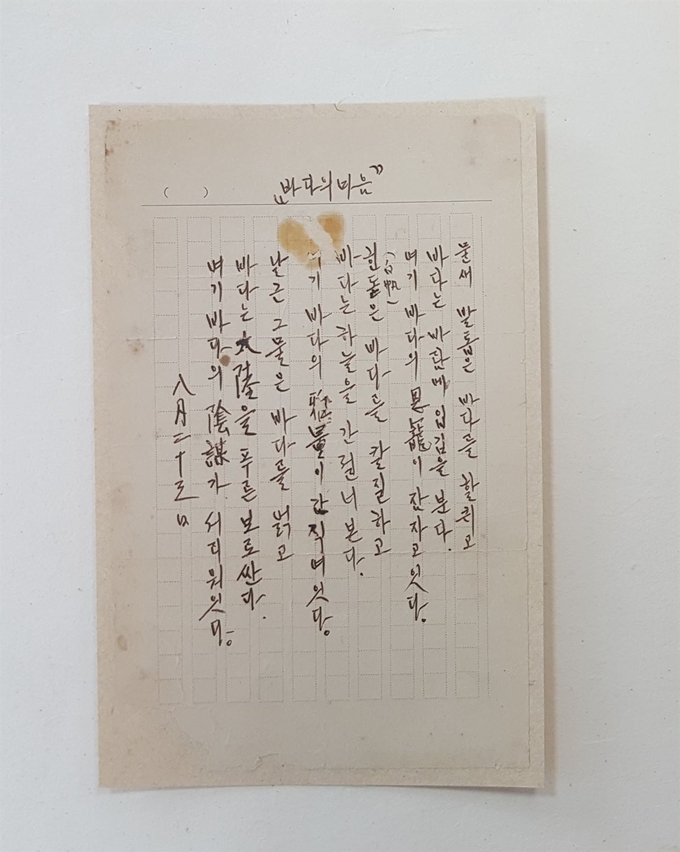 ( )
"바다의마음"
물새 발톱은 바다를 할퀴고
바다는 바람에 입김을 분다.
여기 바다의 恩寵이 잠자고잇다.
흰돗은 (白帆) 바다를 칼질하고
바다는 하늘을 간질너본다.
바다의 雅量이 간직여잇다.
날근 그물은 바다를 얽고
바다는 大陸을 푸른 보로싼다.
여기 바다의 陰謀가 서리워잇다.
八月二十三日